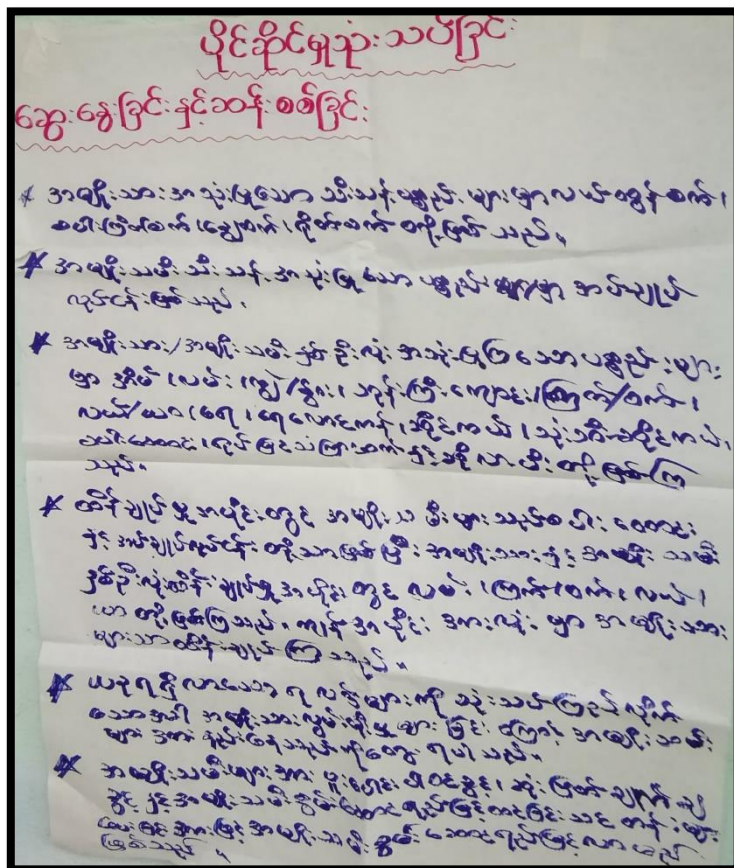 ပိုင်ဆိုင်မှုသုံးသပ်ခြင်း
ဆွေးနွေးခြင်းနှင့်ဆန်းစစ်ခြင်း
* အမျိုးသားအသုံးပြုသော သီးသန့်ပစ္စည်းများမှာလယ်ထွန်စက်၊
စပါးကြိတ်စက်၊ ချွေစက်၊ ရိတ်စက် တို့ဖြစ်သည်။
* အမျိုးသမီးသီးသန့် အသုံးပြုသော ပစ္စည်းများမှာ အပ်ချုပ်
လုပ်ငန်းဖြစ်သည်။
* အမျိုးသား/အမျိုးသမီးနှစ်ဦးလုံး အသုံးပြုကြသောပစ္စည်းများ
မှာ အိမ်၊ လမ်း၊ ကျွဲ/နွား၊ ဘုန်းကြီးကျောင်း၊ ကြက်/ဝက်၊
လယ်/ယာ၊ ရေ၊ ရေလှောင်ကန်၊ ဆိုင်ကယ်၊ သုံးဘီးဆိုင်ကယ်၊
စပါး၊ ရုပ်မြင်သံကြားစက်နှင့် ဆိုလာမီး တို့ဖြစ်ကြ
သည်။
* ထိန်းချုပ်မှုအပိုင်းတွင် အမျိုးသမီးများသည်စပါး
နှင့် အပ်ချုပ်လုပ်ငန်း တို့သာဖြစ်ပြီး အမျိုးသားနှင့် အမျိုးသမီး
နှစ်ဦးလုံးထိန်းချုပ်မှုအပိုင်းတွင် လမ်း၊ ကြက်၊ ဝက်၊ လယ်၊
ယာ တို့ဖြစ်ကြသည်။ ကျန်အပိုင်း အားလုံးမှာ အမျိုးသား
များသာထိန်းချုပ်ကြသည်။
* ယခုရရှိလာသော ရလဒ်များကို သုံးသပ်ကြည့်လိုက်
သောအခါ အမျိုးသားလွှမ်းမိုးမှုများခြင်းကြောင့် အမျိုးသမီး
များ အားနည်းနေသည်ကိုတွေ့ရပါသည်။
* အမျိုးသမီးများအား ပူးပေါင်းပါဝင်ခွင့်၊ ဆုံးဖြတ်ချက်ချ
ခွင့်နှင့် အမျိုးသမီးစွမ်းဆောင်ရည်မြှင့်တင်ခြင်းသင်တန်းများ
ပေးခြင်းအားဖြင့် အမျိုးသမီးစွမ်းဆောင်ရည်မြင့်လာမည်
ဖြစ်သည်။